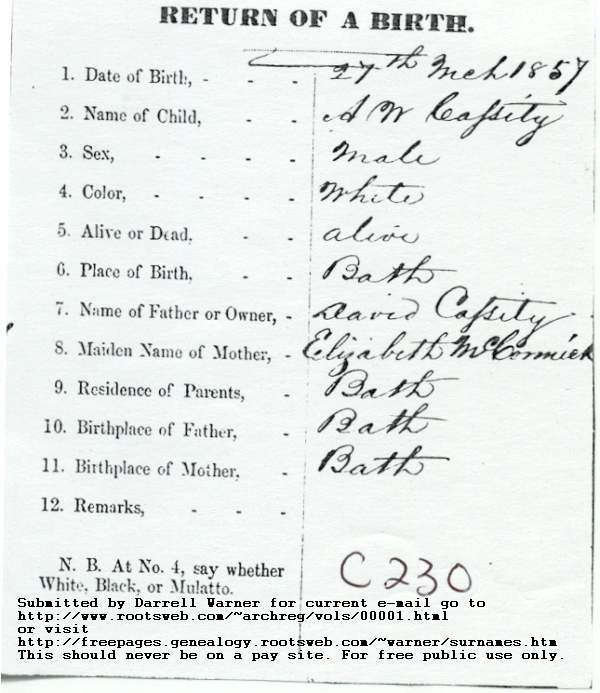 RETURN OF A BIRTH.
1. Date of Birth, - - - 27th Mch 1857
2. Name of Child, - - A W Caſsity
3. Sex, - - - - Male
4. Color, - - - - White
5. Alive or Dead, - - alive
6. Place of Birth, - - Bath
7. Name of Father or Owner, - David Caſsity
8. Maiden Name of Mother, - Elizabeth McCormick
9. Residence of Parents, - Bath
10. Birthplace of Father, - Bath
11. Birthplace of Mother, - Bath
12. Remarks, - - -
N. B. At No. 4, say whether
White, Black, or Mulatto.
C230
Submitted by Darrell Warner for current e-mail go to
http://www.rootsweb.com/~archreg/vols/00001.html
or visit
http://freepages.genealogy.rootsweb.com/~warner/surnames.htm
This should never be on a pay site. For free public use only.